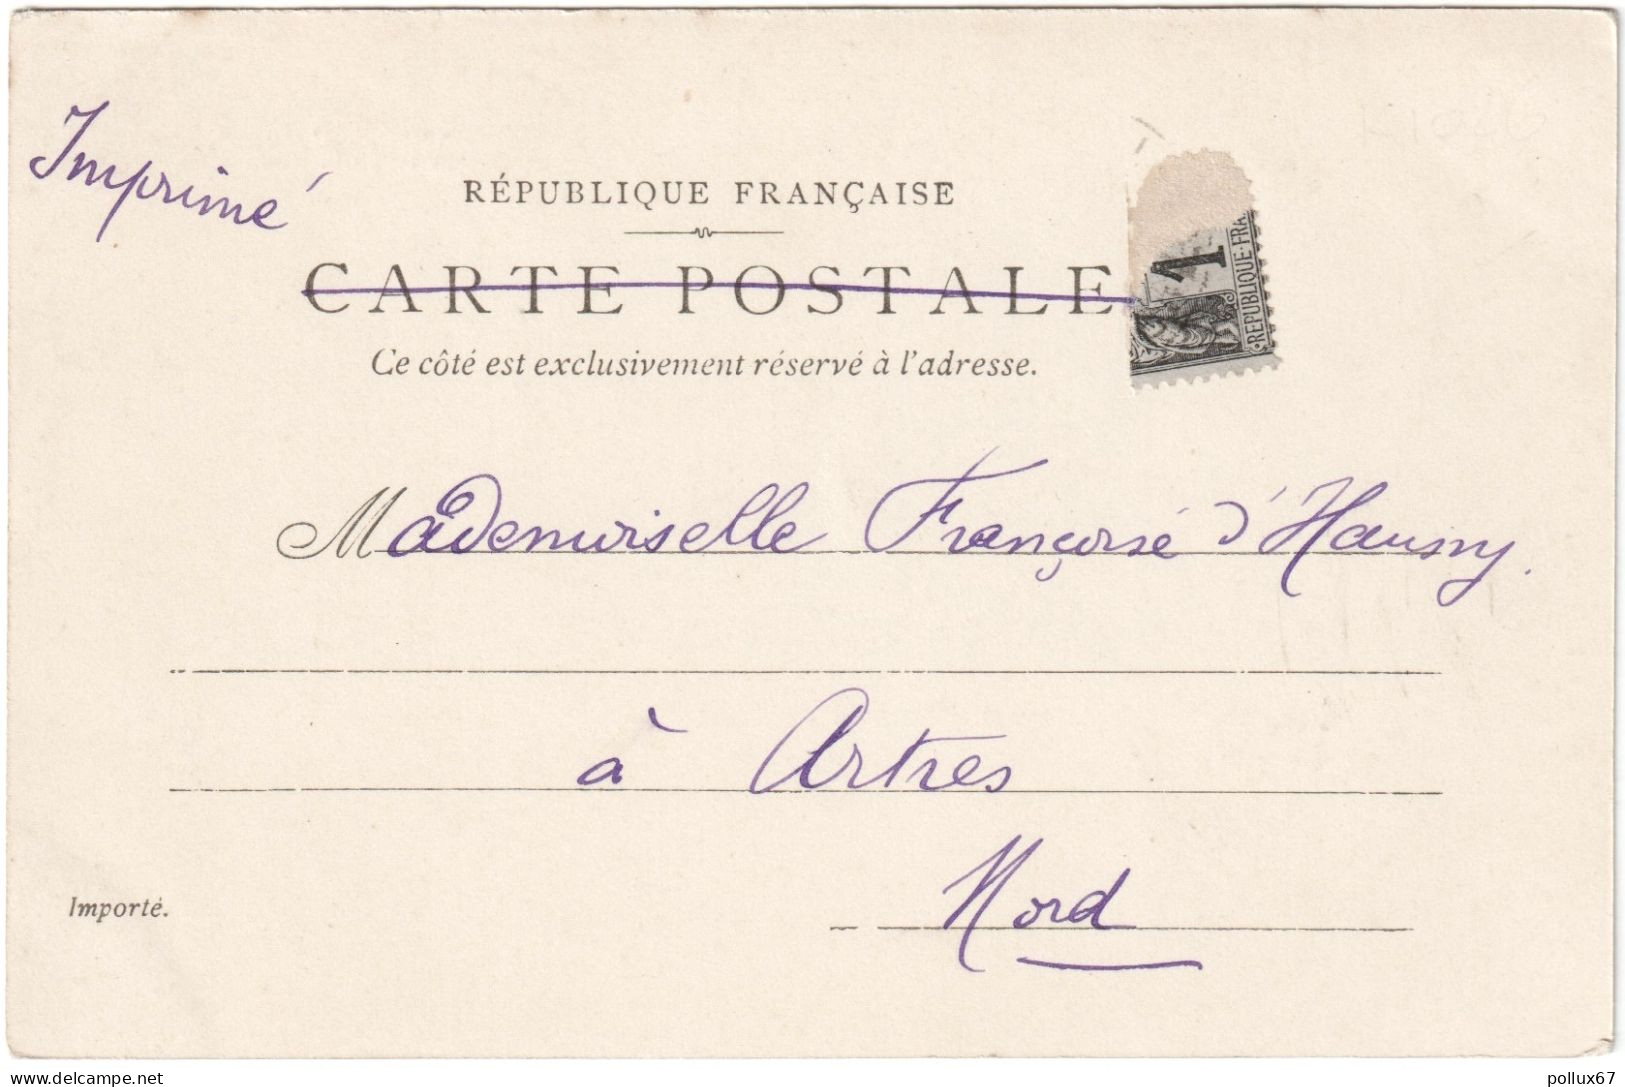 Imprimé
RÉPUBLIQUE FRANÇAISE
CARTE POSTALE
Ce côté est exclusivement réservé à l'adresse.
1
REPUBLIQUE·FRA
Mademoiselle Françoise d'Hausny.
à Artres
Nord
Importé.
delcampe.net
pollux67